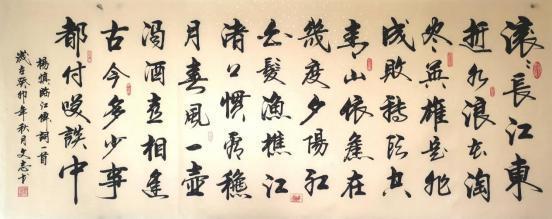 滚〻長江東
逝水浪花淘
尽英雄是非
成敗轉頭空
青山依舊在
幾度夕陽紅
白髮漁樵江
渚上慣看穐
月春風一壺
濁酒喜相逢
古今多少事
都付咲談中
楊慎臨江僊詞一首
歲在癸卯年秋月文志书